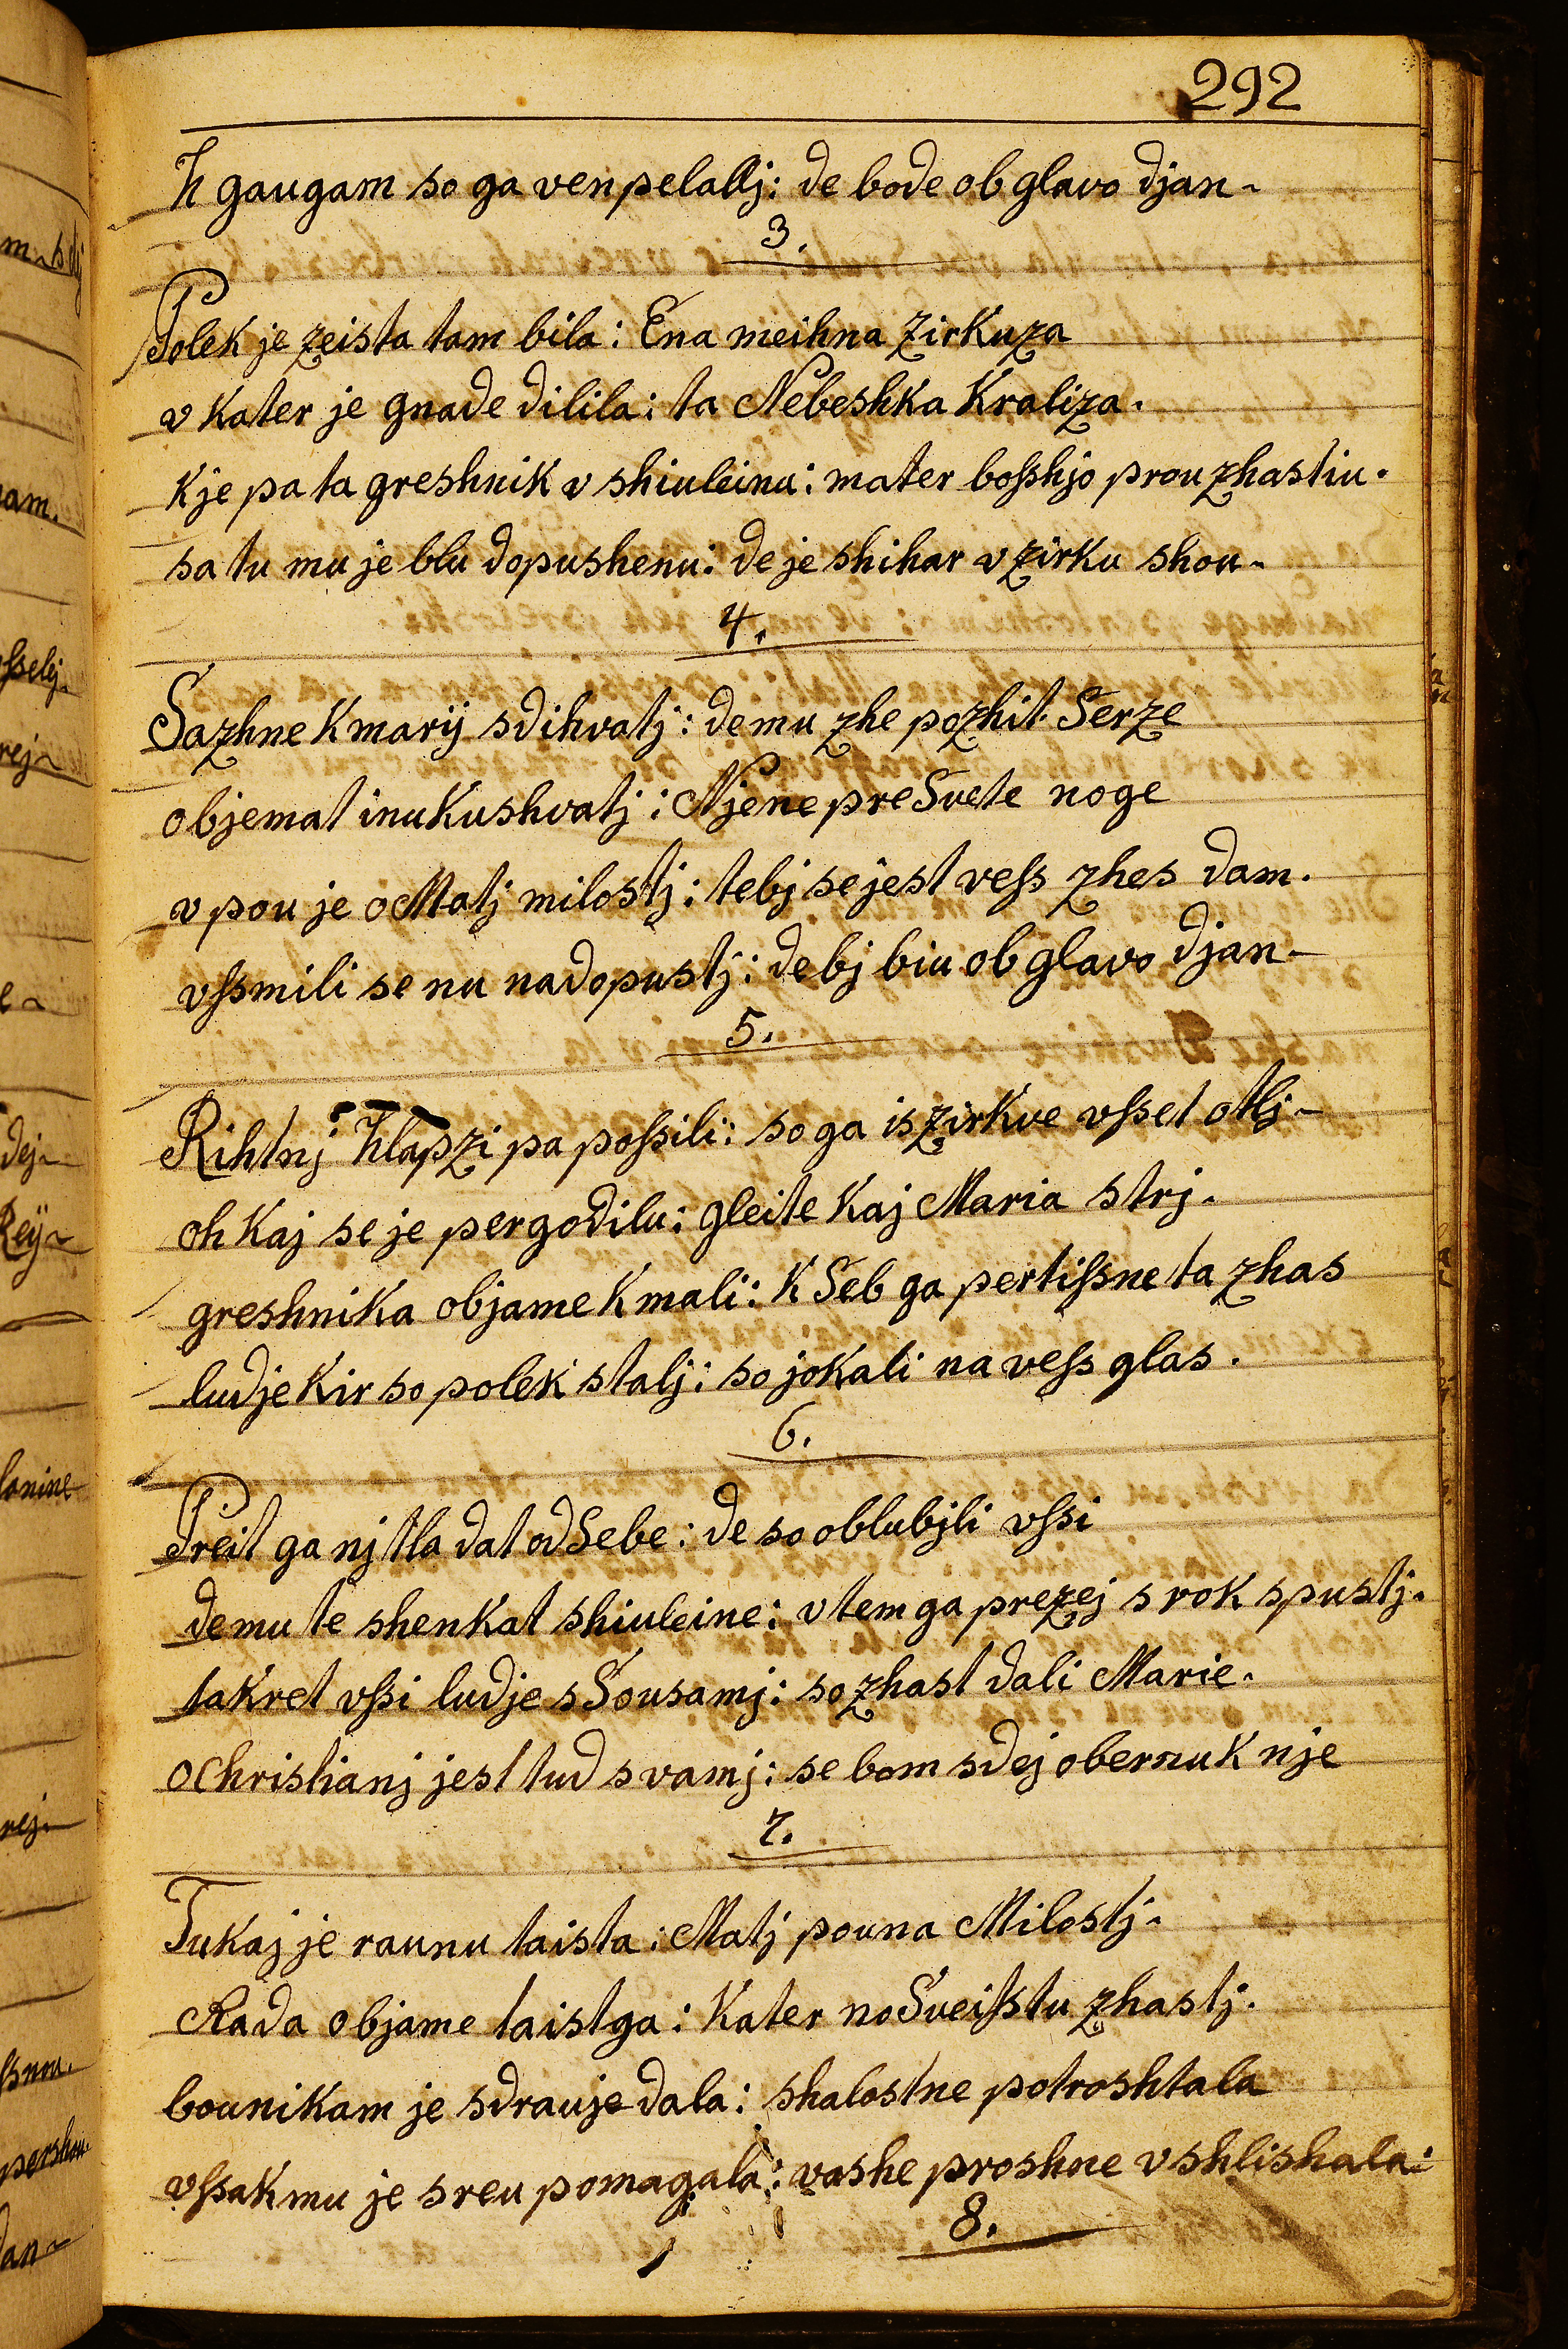 292
K gaugam so ga ven pelallj: de bode ob glavo djan-
3.
Polek je zeista tam bila: Ena meihna zirkuza
v kater je gnade dilila: ta Nebeshka Kraliza.
kje pa ta greshnik v shiuleinu: mater bosshjo prou zhastiu.
sa tu mu je blu dopushenu: de je shihar v zirku shou-
4.
Sazhne k marij sdihvatj: de mu zhe pozhit Serze
objemat inu kushvatj: Njene pre Svete noge
v pou je o Matj milostj: tebj se jest vess zhes dam.
vssmili se nu nadopustj: de bj biu ob glavo djan-
5.
Rihtnj hlapzi pa possili: so ga is zirkve vsset otlj-
oh kaj se je pergodilu: gleite kaj Maria strj.
greshnika objame k mali: k Seb ga pertissne ta zhas
ludje kir so polek stalj: so jokali na vess glas.
6.
Preit ga nj tla dat od Sebe: de so oblubjli vssi
de mu te shenkat shiuleine: v tem ga prezej s rok spustj.
takret vssi ludje s Sousamj: so zhast dali Marie.
o Christianj jest tud s vamj: se bom sdej obernu k nje
7.
Tukaj je raunu taista: Matj pouna Milostj.
Rada objame taistga: kater no Sveisstu zhastj.
bounikam je sdrauje dala: shalostne potroshtala
vssakmu je sreu pomagala: vashe proshne vshlishala:
8.